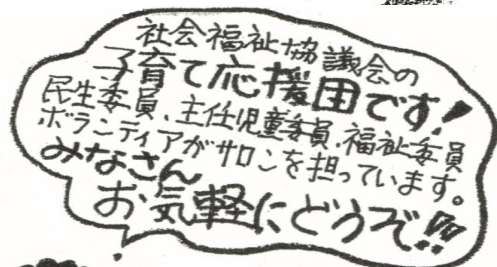 社会福祉協議会の
子育て応援団です!
民生委員、主任児童委員、福祉委員
ボランティアがサロンを担っています。
みなさん
お気軽にどうぞ!!